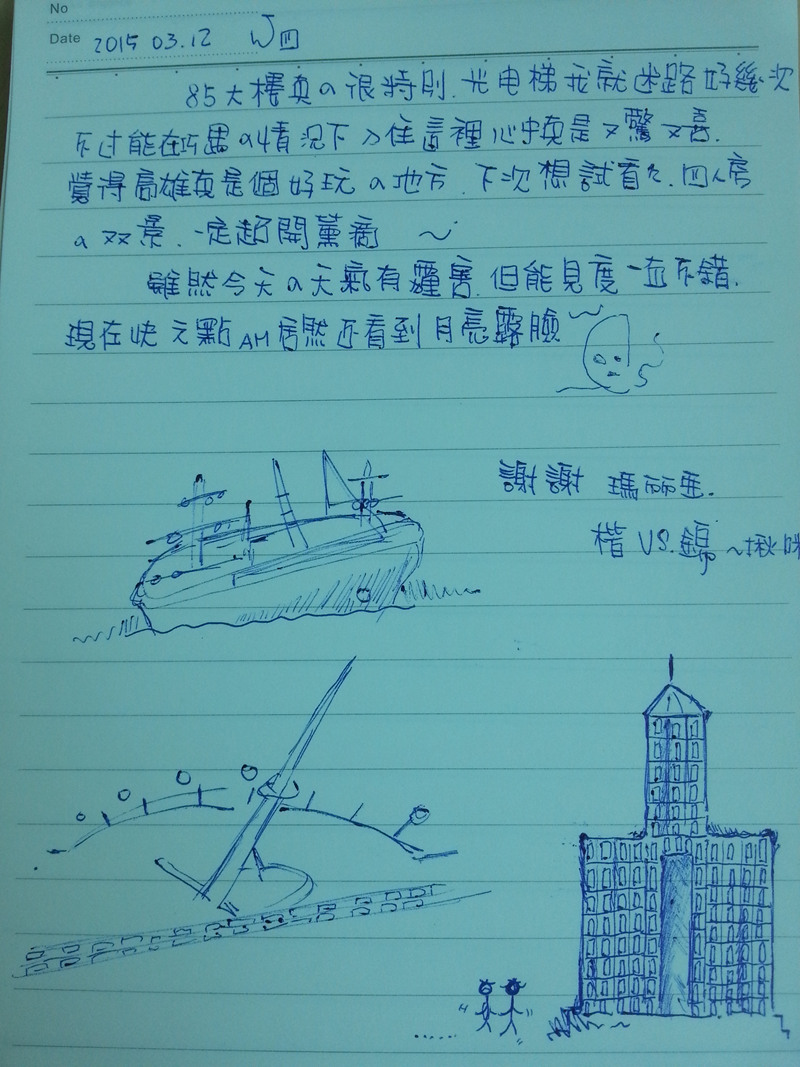 No
Date 2015 03.12 W四
85大樓真的很特別.光电梯我就迷路好幾次
不过能在巧遇的情況下入住這裡心中真是又驚又喜.
覺得高雄真是個好玩的地方.下次想試看々.四人房
的双景.一定超開薰的 ~
雖然今天的天氣有霾害.但能見度一直不錯.
現在快 點AM 居然还看到月亮露臉~
謝謝 瑪丽亞.
楷 VS. ~揪咪